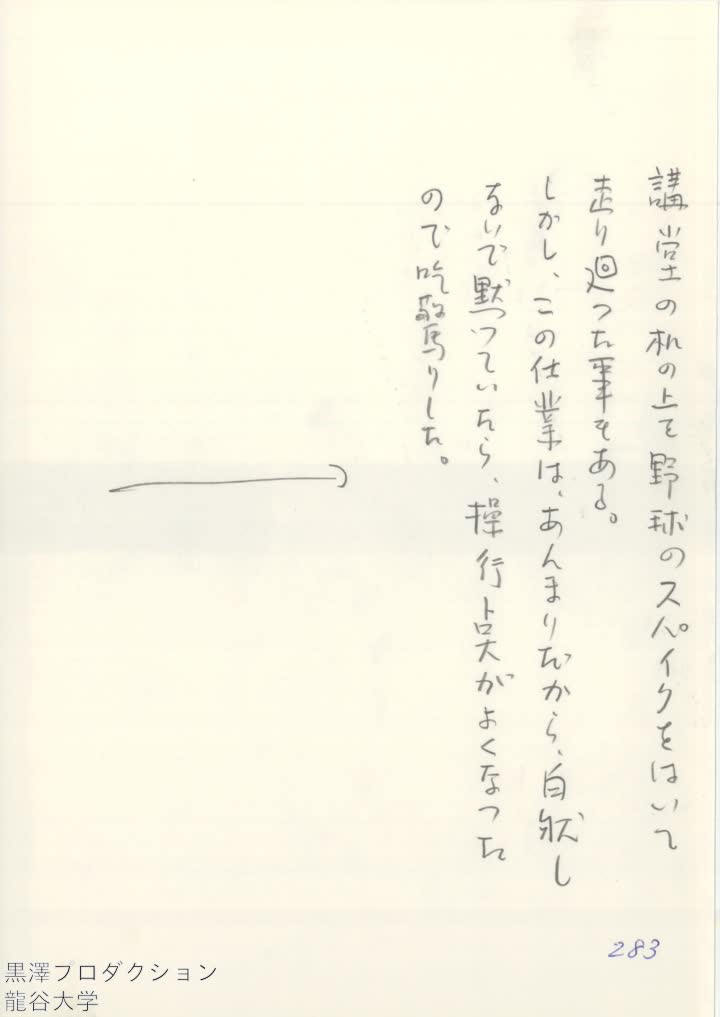 講堂の机の上を野球のスパイクをはいて
走り廻った事もある。
しかし、この仕業は、あんまりだから、自然し
ないで黙っていたら、操行点がよくなった
ので吃驚りした。
283
黒澤プロダクション
龍谷大学